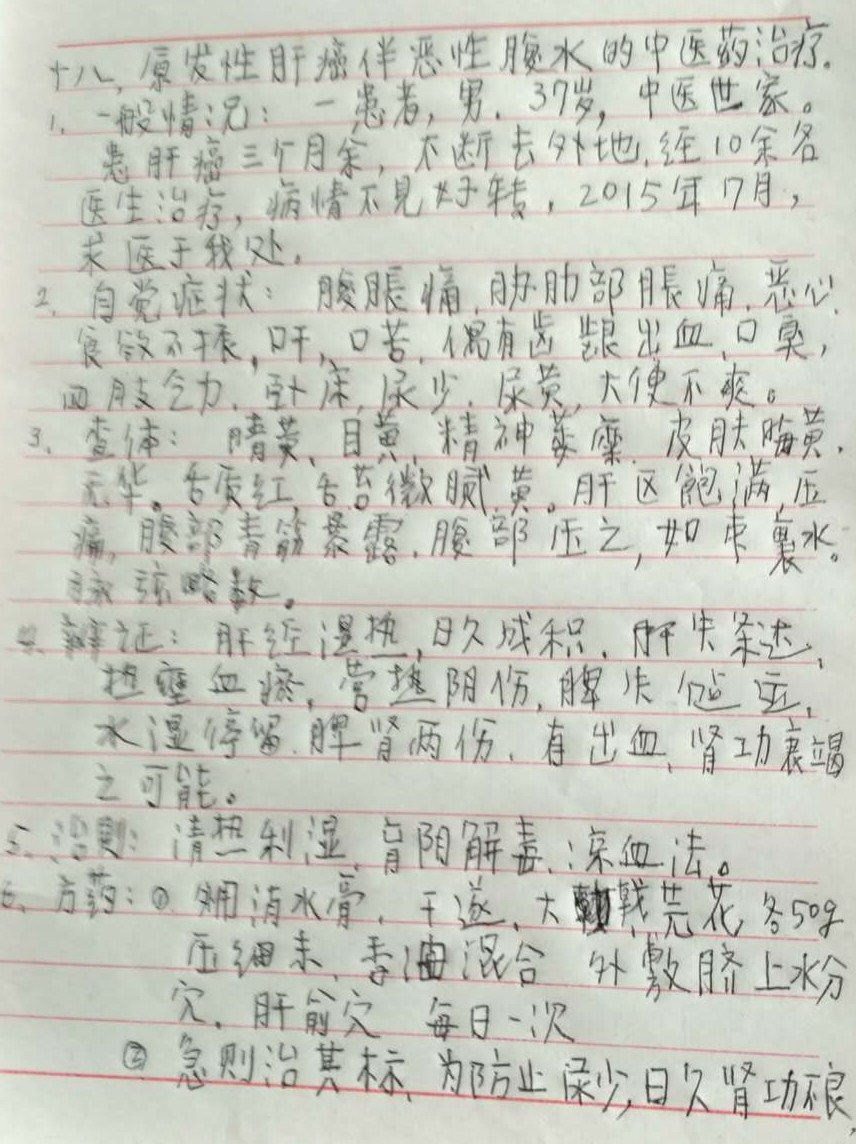 十八、原发性肝癌伴恶性腹水的中医药治疗。
1、一般情况：一患者，男，37岁，中医世家。
患肝癌三个月余，不断去外地，经10余名
医生治疗，病情不见好转，2015年17月，
求医于我处。
2、自觉症状：腹胀痛，胁肋部胀痛，恶心，
食欲不振，口干，口苦，偶有齿龈出血，口臭，
四肢乏力，卧床，尿少，尿黄，大便不爽。
3、查体：睛黄，目黄，精神萎靡，皮肤晦黄，
无华。舌质红，舌苔微腻黄。肝区饱满，压
痛，腹部青筋暴露，腹部压之，如束裹水。
脉弦略数。
4、辨证：肝经湿热，日久成积，肝失条达，
热壅血瘀，营热阴伤，脾失健运，
水湿停留，脾肾两伤，有出血、肾功衰竭
之可能。
5、治则：清热利湿，育阴解毒、凉血法。
6、方药：① 外用消水膏，干遂、大戟、芫花各50g
压细末，香油混合 外敷脐上水分
穴，肝俞穴 每日一次
② 急则治其标，为防止尿少，日久肾功不良，